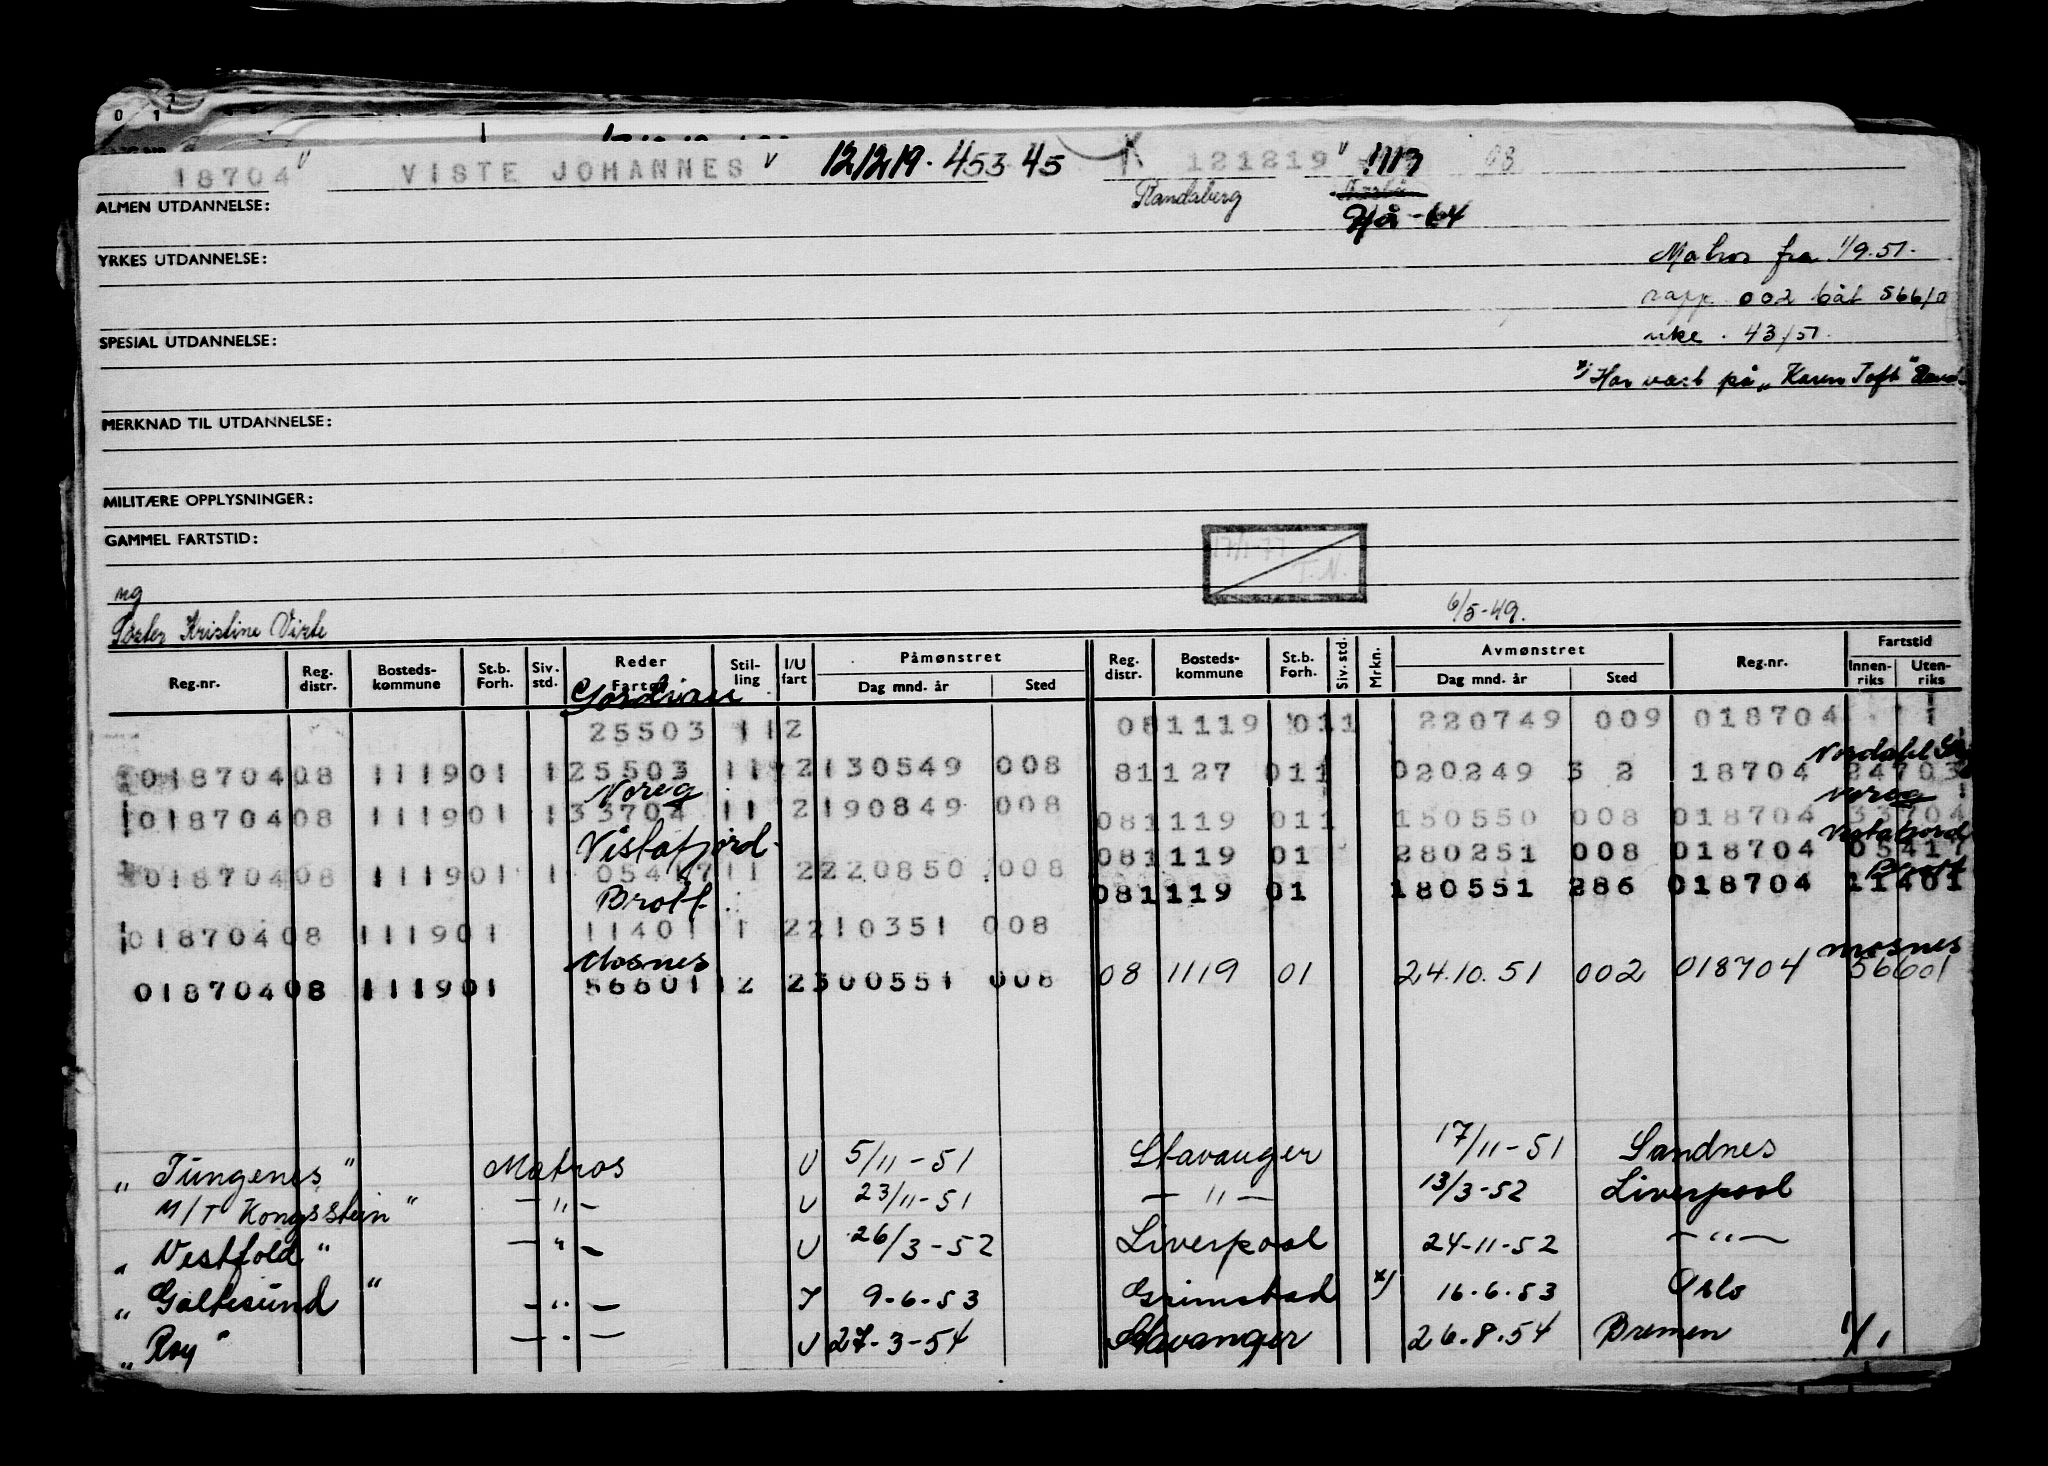 18704 VISTE JOHANNES 121219. 45345 121219 1113 08
Randaberg
Hå -64
ALMEN UTDANNELSE:
YRKES UTDANNELSE:
Matros fra 1/9.51.
rapp. 002 båt 56610
uke. 43/51.
SPESIAL UTDANNELSE:
x) Har vært på „Karen Toft"
MERKNAD TIL UTDANNELSE:
MILITÆRE OPPLYSNINGER:
GAMMEL FARTSTID:
17/1-77
T.N.
ng
Søster Kristine Viste
6/5-49.
Reg.nr. Reg. distr. Bosteds-kommune St.b. Forh. Siv. std. Reder Fartøy Stil-ling I/U fart Påmønstret Dag mnd. år Sted Reg. distr. Bosteds-kommune St.b. Forh. Siv. std. Mrkn. Avmønstret Dag mnd. år Sted Reg.nr. Fartstid Innen-riks Uten-riks
25503 11 2 08 1119 01 1 220749 009 018704
018704 08 1119 01 1 25503 11 2 130549 008 81127 011 020249 3 2 18704 24703
Noreg Noreg
018704 08 1119 01 1 33704 11 2 190849 008 08 1119 01 1 150550 008 018704 33704
Vistafjord Vistafjord
018704 08 1119 01 1 05417 11 2 220850 008 08 1119 01 280251 008 018704 05417
Brott Brott
018704 08 1119 01 11401 1 2 210351 008 08 1119 01 180551 286 018704 11401
Mosnes Mosnes
018704 08 1119 01 56601 12 2 300551 008 08 1119 01 24.10.51 002 018704 56601
„ Tungenes " Matros U 5/11-51 Stavanger 17/11-51 Sandnes
M/T Kongsstein " — " — U 23/11-51 — " — 13/3-52 Liverpool
„ Vestfold " — " — U 26/3-52 Liverpool 24-11-52 — " —
„ Galtesund " — " — I 9-6-53 Grimstad x) 16.6.53 Oslo
„ Roy " — " — U 27-3-54 Stavanger 26.8.54 Bremen